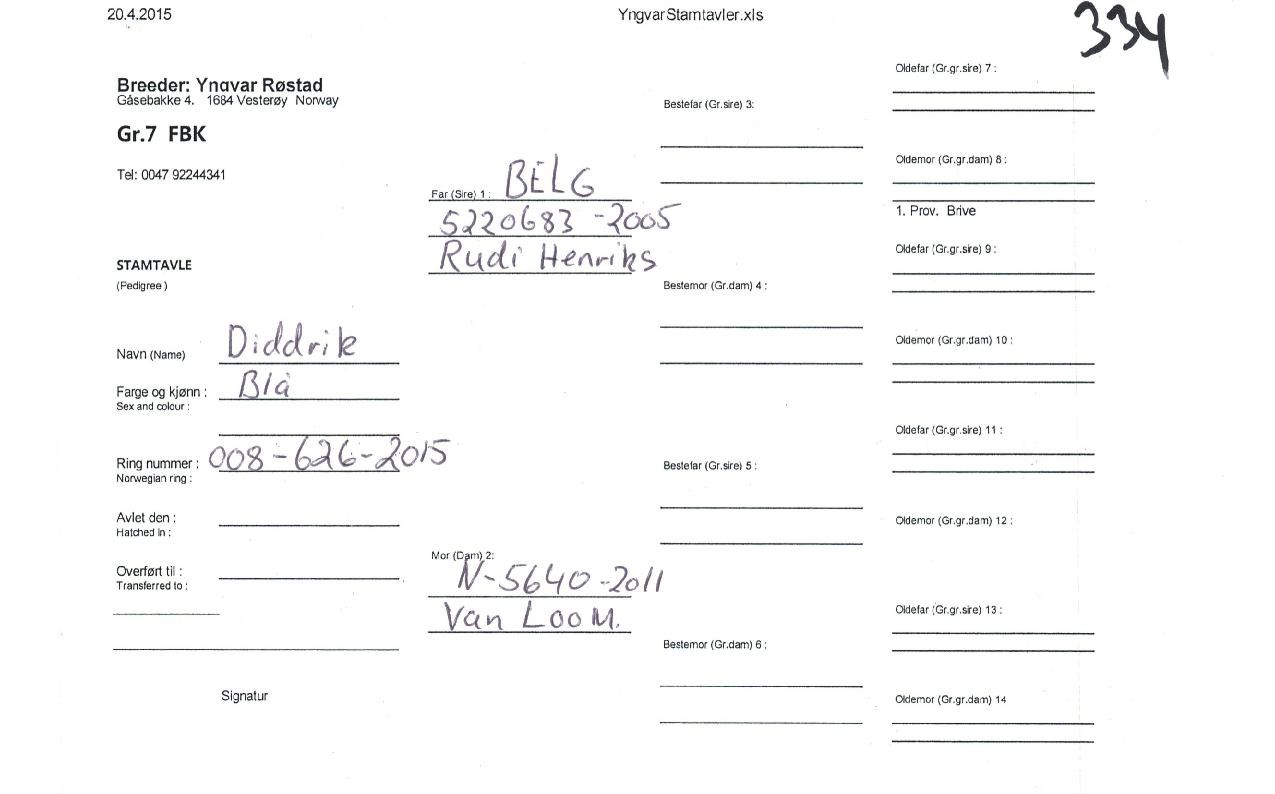 20.4.2015
YngvarStamtavler.xls
334
Breeder: Yngvar Røstad
Gåsebakke 4. 1684 Vesterøy Norway
Gr.7 FBK
Tel: 0047 92244341
STAMTAVLE
(Pedigree )
Navn (Name) Diddrik
Farge og kjønn : Blå
Sex and colour :
Ring nummer : 008-626-2015
Norwegian ring :
Avlet den :
Hatched in :
Overført til :
Transferred to :
Signatur
Far (Sire) 1 : BELG
5220683 -2005
Rudi Henriks
Mor (Dam) 2:
N-5640-2011
Van Loo M.
Bestefar (Gr.sire) 3:
Bestemor (Gr.dam) 4 :
Bestefar (Gr.sire) 5 :
Bestemor (Gr.dam) 6 :
Oldefar (Gr.gr.sire) 7 :
Oldemor (Gr.gr.dam) 8 :
1. Prov. Brive
Oldefar (Gr.gr.sire) 9 :
Oldemor (Gr.gr.dam) 10 :
Oldefar (Gr.gr.sire) 11 :
Oldemor (Gr.gr.dam) 12 :
Oldefar (Gr.gr.sire) 13 :
Oldemor (Gr.gr.dam) 14